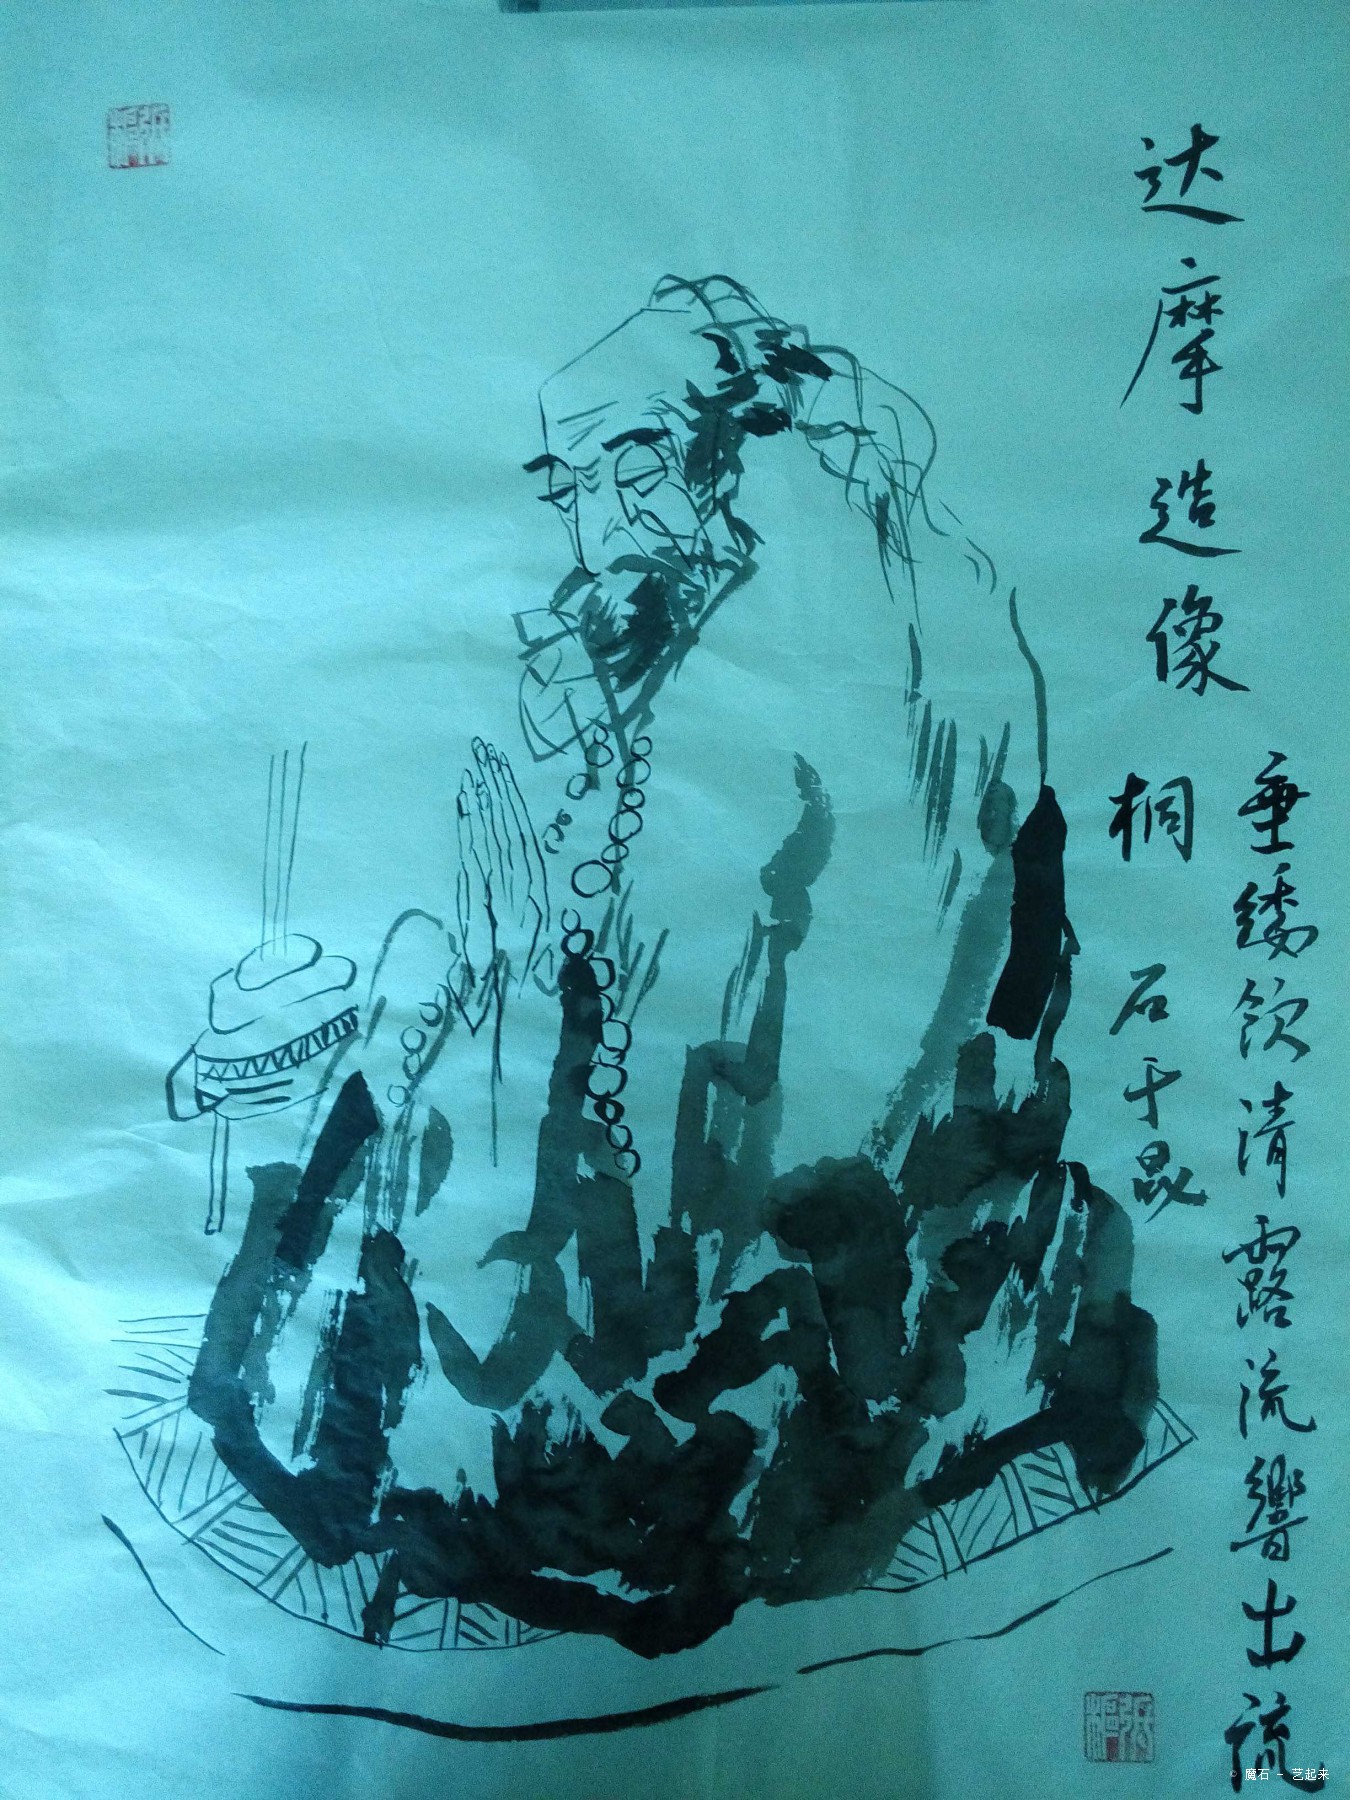 达摩造像
垂緌饮清露流響出疏
桐
石于昆
© 魔石 - 艺起来